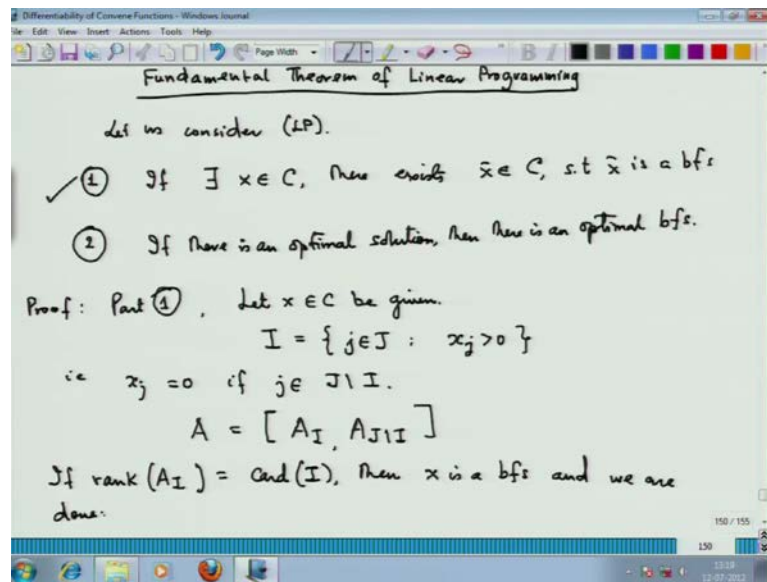 Differentiability of Convene Functions - Windows Journal
File Edit View Insert Actions Tools Help
Page Width
Fundamental Theorem of Linear Programming
Let us consider (LP).
① If ∃ x ∈ C, there exists x̄ ∈ C, s.t x̄ is a bfs
② If there is an optimal solution, then there is an optimal bfs.
Proof: Part ①, Let x ∈ C be given.
I = { j∈J : xj>0 }
ie xj =0 if j∈ J\I.
A = [ A_I, A_J\I ]
If rank (A_I) = card(I), then x is a bfs and we are
done.
150 / 155
150
13:19
12-07-2012